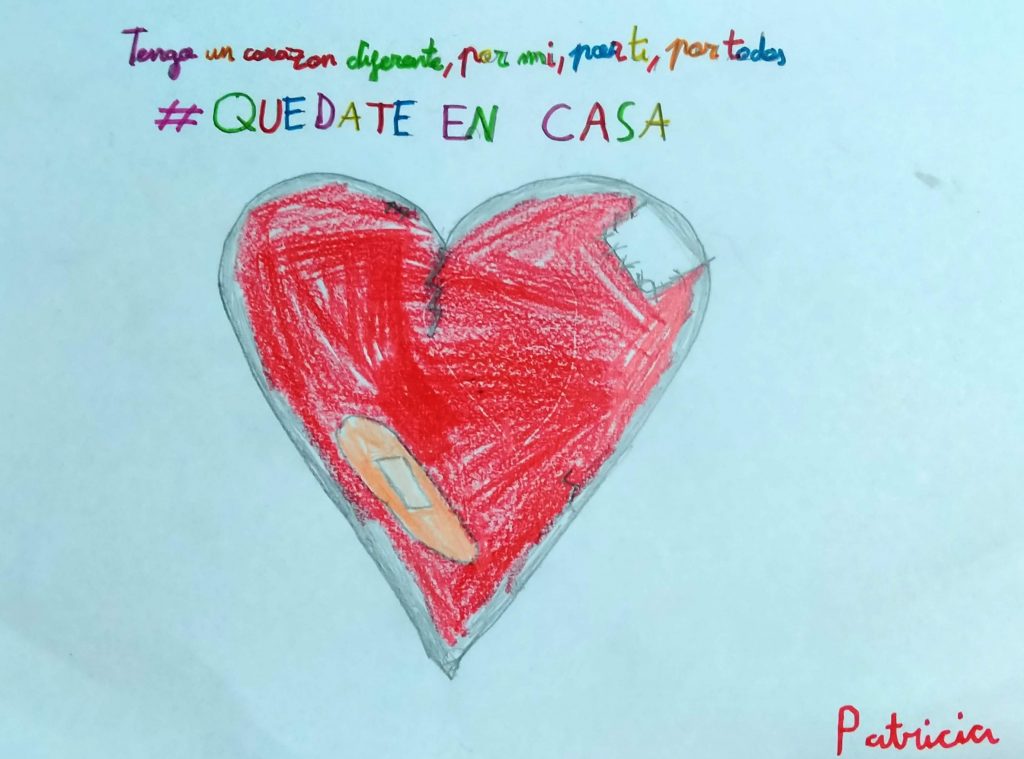 Tengo un corazon diferente, por mi, por ti, por todos
#QUEDATE EN CASA
Patricia